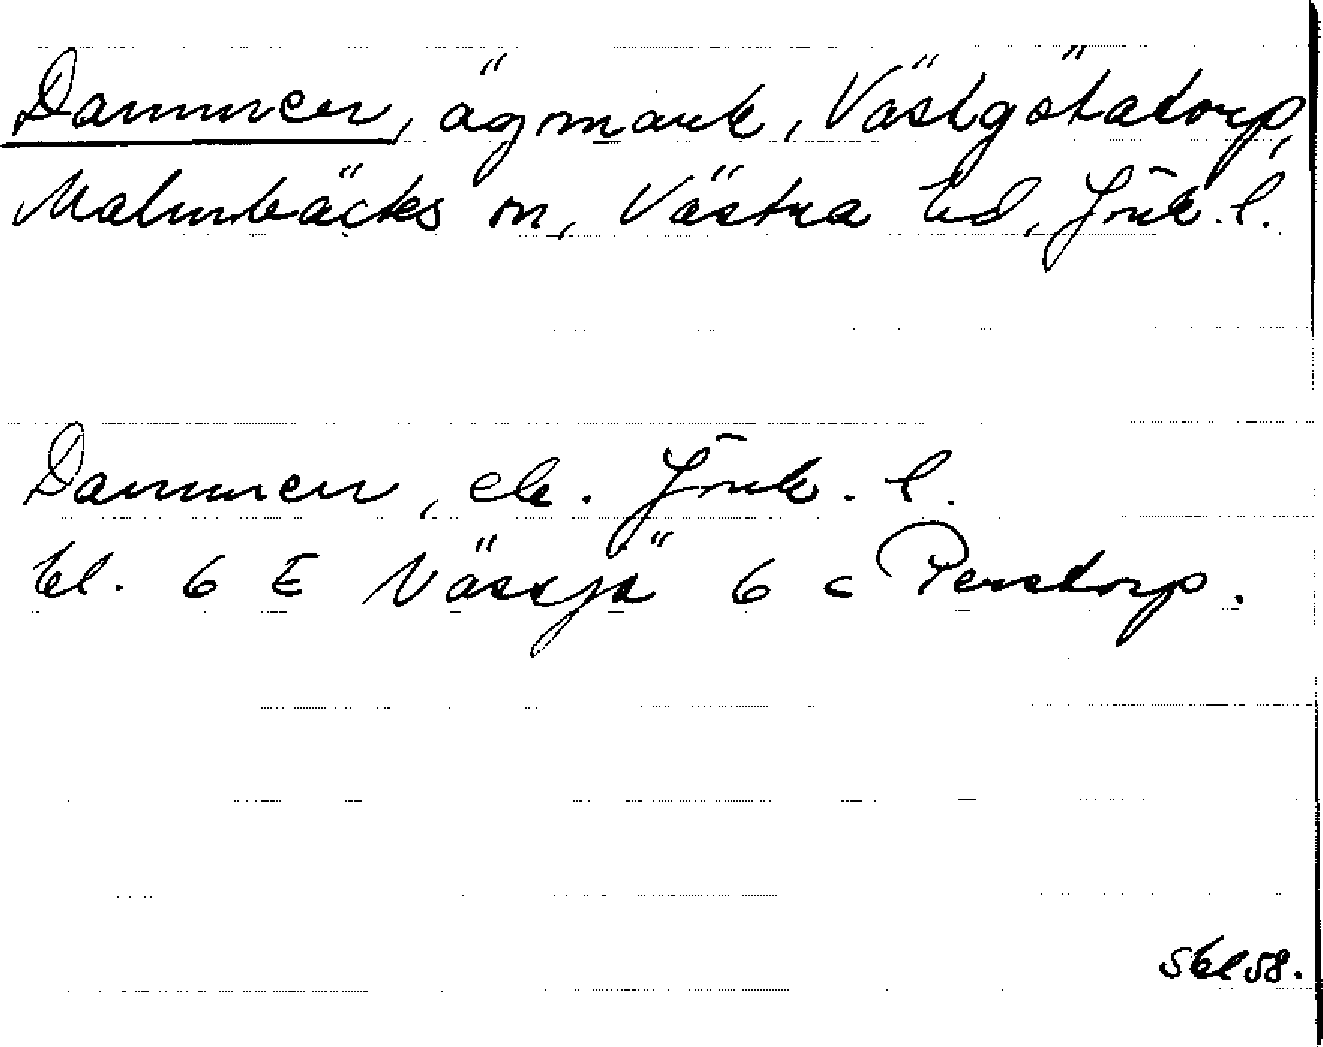 Dammen, ägomark, Västgötatorp,
Malmbäcks sn, Västra hd, Jönk. l.
Dammen, ek. Jönk. l.
bl. 6 E Nässjö 6 c Perstorp.
Skl 58.